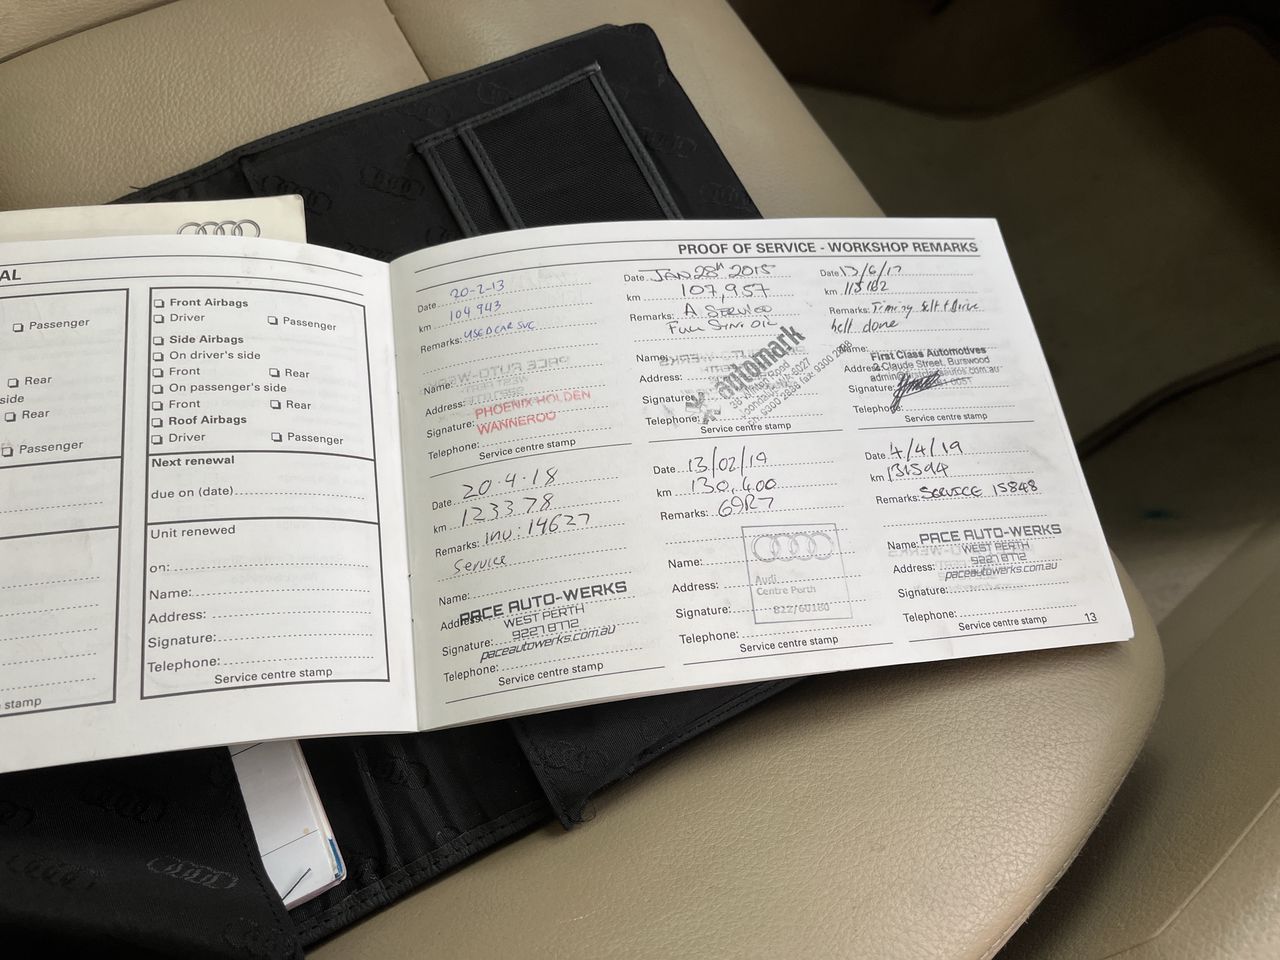 AL
Passenger
Rear
side
Rear
Passenger
stamp
Front Airbags
Driver
Passenger
Side Airbags
On driver's side
Front
Rear
On passenger's side
Front
Rear
Roof Airbags
Driver
Passenger
Next renewal
due on (date)
Unit renewed
on:
Name:
Address:
Signature:
Telephone:
Service centre stamp
PROOF OF SERVICE - WORKSHOP REMARKS
Date 20-2-13
km 104 943
Remarks: USED CAR SVC
Name:
Address:
PHOENIX HOLDEN
Signature: WANNEROO
Telephone:
Service centre stamp
Date JAN 28th 2015
km 107,957
Remarks: A SERVICE
FULL SYN OIL
Name:
Address:
Signature:
Telephone:
automark
Joondalup 6027
ph 9300 2856 fax 9300 2868
Service centre stamp
Date 13/6/17
km 115102
Remarks: Timing belt & Drive
belt done
Name:
First Class Automotives
Address: 2 Claude Street, Burswood
Signature:
Telephone:
Service centre stamp
Date 20.4.18
km 123378
Remarks: inv: 14627
Service
Name:
PACE AUTO-WERKS
Address: WEST PERTH
9227 8772
Signature: paceautowerks.com.au
Telephone:
Service centre stamp
Date 13/02/19
km 130,400
Remarks: 69R7
Name:
Address:
Signature:
Telephone:
Audi
Centre Perth
Service centre stamp
Date 4/4/19
km 131594
Remarks: SERVICE 15848
Name: PACE AUTO-WERKS
WEST PERTH
Address: 9227 8772
paceautowerks.com.au
Signature:
Telephone:
Service centre stamp
13